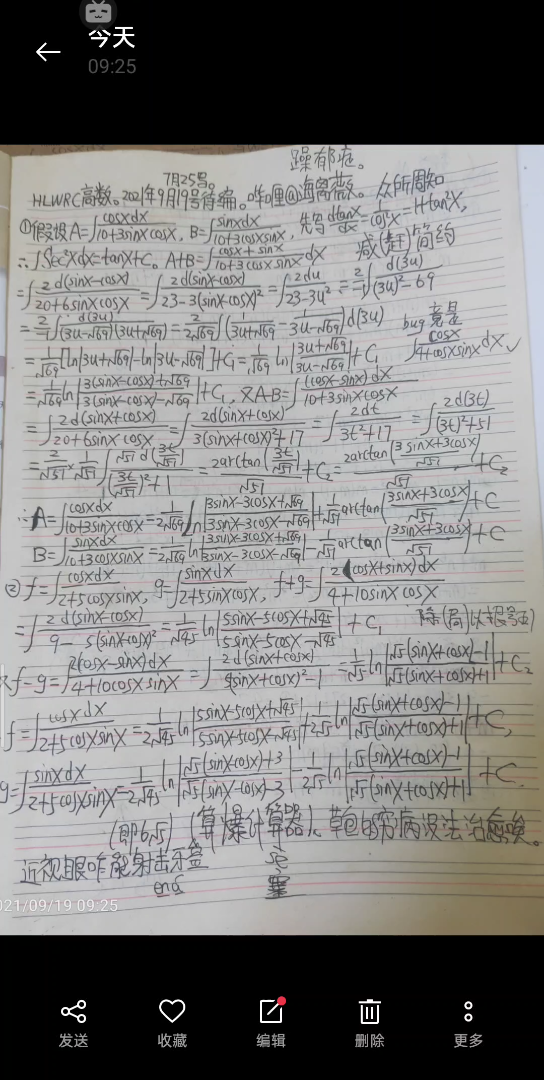 今天
09:25
躁郁症。
7月25号。
HLWRC高数。2021年9月19号肯编。咋哩@海离薇。众所周知
①假设A=∫cosxdx/(10+3sinxcosx), B=∫sinxdx/(10+3cosxsinx), 先写 dtanx/dx=1/cos²x=1+tan²x,
∴∫Sec²xdx=tanx+C。A+B=∫(cosx+sinx)/(10+3cosxsinx)dx
=∫2d(sinx-cosx)/(20+6sinxcosx)=∫2d(sinx-cosx)/(23-3(sinx-cosx)²)=∫2du/(23-3u²)=
=1/√69[ln|3u+√69|-ln|3u-√69|]+C₁=1/√69 ln|(3u+√69)/(3u-√69)|+C₁
bug竟是
∫cosx/(4+cosxsinx)dx✓
=1/√69 ln|(3(sinx-cosx)+√69)/(3(sinx-cosx)-√69)|+C₁, 又A-B=∫(cosx-sinx)dx/(10+3sinxcosx)
=∫2d(sinx+cosx)/(20+6sinxcosx)=∫2d(sinx+cosx)/(3(sinx+cosx)²+17)=∫2dt/(3t²+17)=∫2d(3t)/((3t)²+51)
=2/√51·1/√51∫√51d(3t/√51)/((3t/√51)²+1)=2arctan(3t/√51)/√51+C₂=2arctan((3sinx+3cosx)/√51)/√51+C₂
∴A=∫cosxdx/(10+3sinxcosx)=1/(2√69) ln|(3sinx-3cosx+√69)/(3sinx-3cosx-√69)|+1/√51 arctan((3sinx+3cosx)/√51)+C
B=∫sinxdx/(10+3cosxsinx)=1/(2√69) ln|(3sinx-3cosx+√69)/(3sinx-3cosx-√69)|-1/√51 arctan((3sinx+3cosx)/√51)+C
②f=∫cosxdx/(2+5cosxsinx), g=∫sinxdx/(2+5sinxcosx), f+g=∫2(cosx+sinx)dx/(4+10sinxcosx)
=∫2d(sinx-cosx)/(9-5(sinx-cosx)²)=1/√45 ln|(5sinx-5cosx+√45)/(5sinx-5cosx-√45)|+C₁
又f-g=∫2(cosx-sinx)dx/(4+10cosxsinx)=∫2d(sinx+cosx)/(5(sinx+cosx)²-1)=1/√5 ln|(√5(sinx+cosx)-1)/(√5(sinx+cosx)+1)|+C₂
f=∫cosxdx/(2+5cosxsinx)=1/(2√45) ln|(5sinx-5cosx+√45)/(5sinx-5cosx-√45)|+1/(2√5) ln|(√5(sinx+cosx)-1)/(√5(sinx+cosx)+1)|+C,
g=∫sinxdx/(2+5cosxsinx)=1/(2√45) ln|(√5(sinx-cosx)+3)/(√5(sinx-cosx)-3)|-1/(2√5) ln|(√5(sinx+cosx)-1)/(√5(sinx+cosx)+1)|+C.
(即6√5)(算爆计算器)。草包的穷病没法治愈唉。
近视眼咋能射击牙签
end
2021/09/19 09:25
发送
收藏
编辑
删除
更多